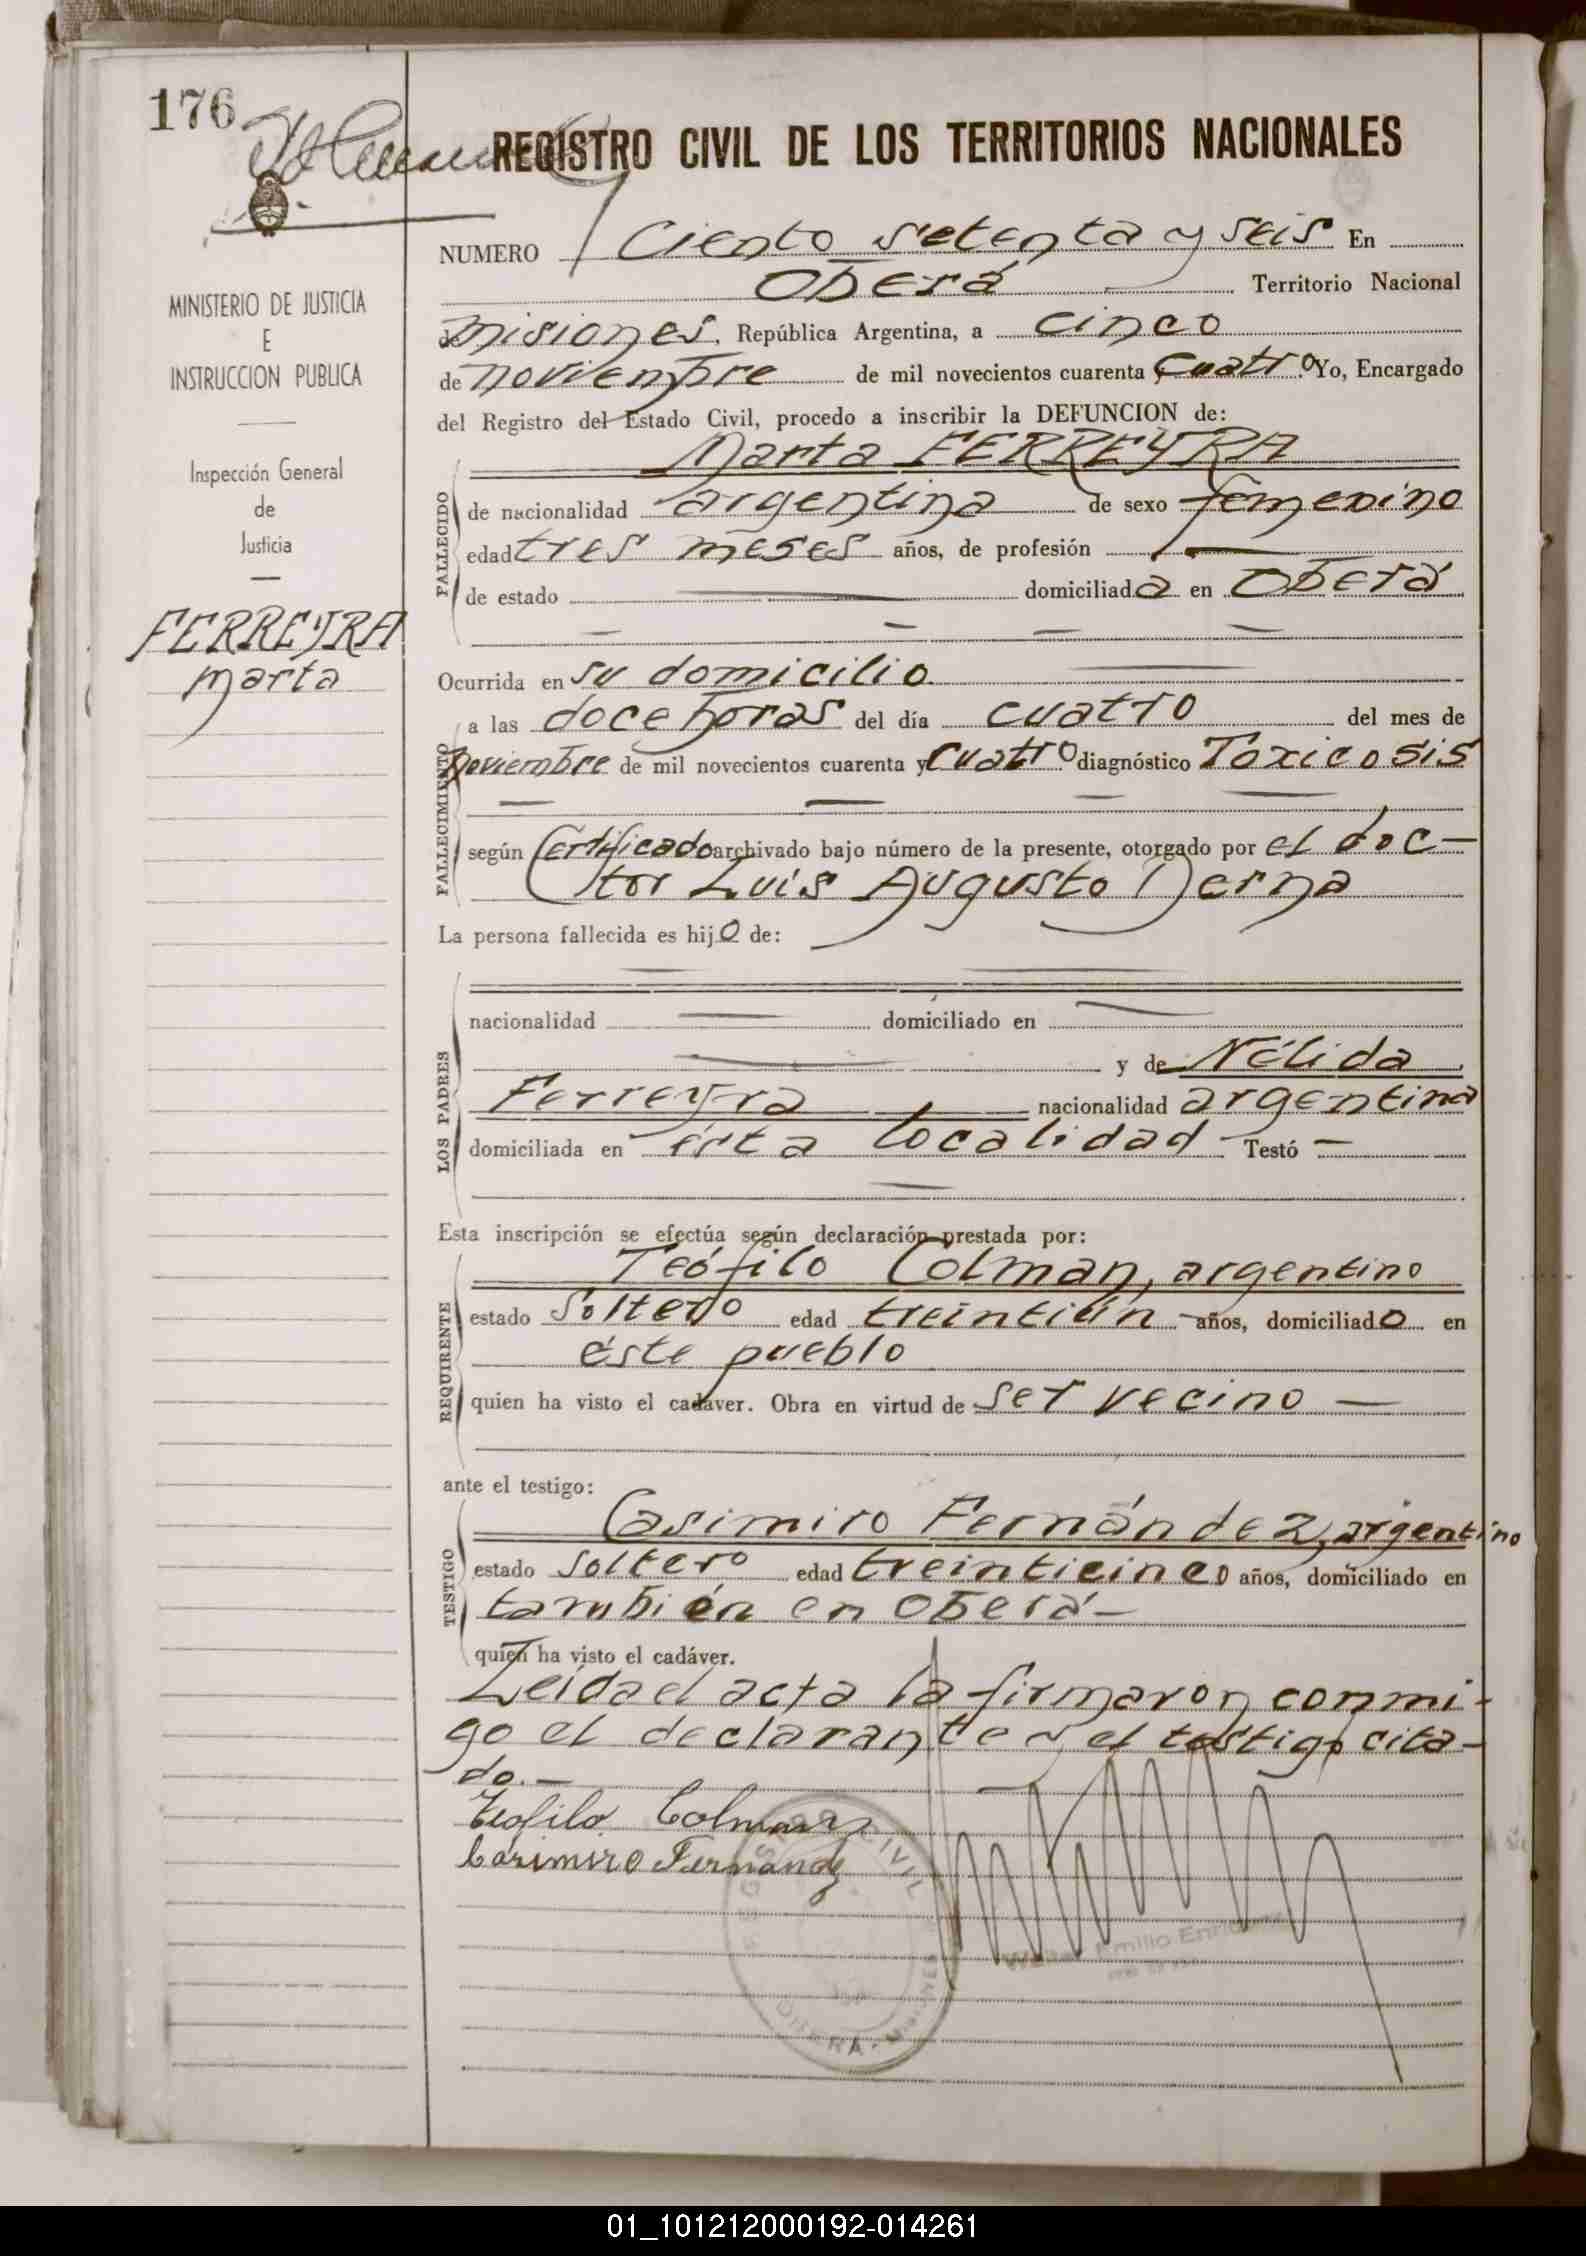 176
REGISTRO CIVIL DE LOS TERRITORIOS NACIONALES
MINISTERIO DE JUSTICIA
E
INSTRUCCION PUBLICA
Inspección General
de
Justicia
FERREYRA
Marta
NUMERO Ciento setenta y seis En
Oberá Territorio Nacional
Misiones, República Argentina, a cinco
de noviembre de mil novecientos cuarenta y cuatro. Yo, Encargado
del Registro del Estado Civil, procedo a inscribir la DEFUNCION de:
Marta FERREYRA
FALLECIDO
de nacionalidad argentina de sexo femenino
edad tres meses años, de profesión —
de estado — domiciliada en Oberá
Ocurrida en su domicilio
FALLECIMIENTO
a las doce horas del día cuatro del mes de
noviembre de mil novecientos cuarenta y cuatro diagnóstico Toxicosis
según Certificado archivado bajo número de la presente, otorgado por el doc-
tor Luis Augusto Derna
La persona fallecida es hijo de:
LOS PADRES
nacionalidad — domiciliado en —
— y de Nélida
Ferreyra nacionalidad argentina
domiciliada en ésta localidad Testó —
Esta inscripción se efectúa según declaración prestada por:
REQUIRENTE
Teófilo Colman, argentino
estado soltero edad treintiún años, domiciliado en
éste pueblo
quien ha visto el cadáver. Obra en virtud de ser vecino —
ante el testigo:
TESTIGO
Casimiro Fernández, argentino
estado soltero edad treinticinco años, domiciliado en
también en Oberá —
quien ha visto el cadáver.
Leída el acta la firmaron conmi-
go el declarante y el testigo cita-
do.—
Teofilo Colman
Casimiro Fernandz
REGISTRO CIVIL
OBERA - MISIONES
Emilio
01_101212000192-014261